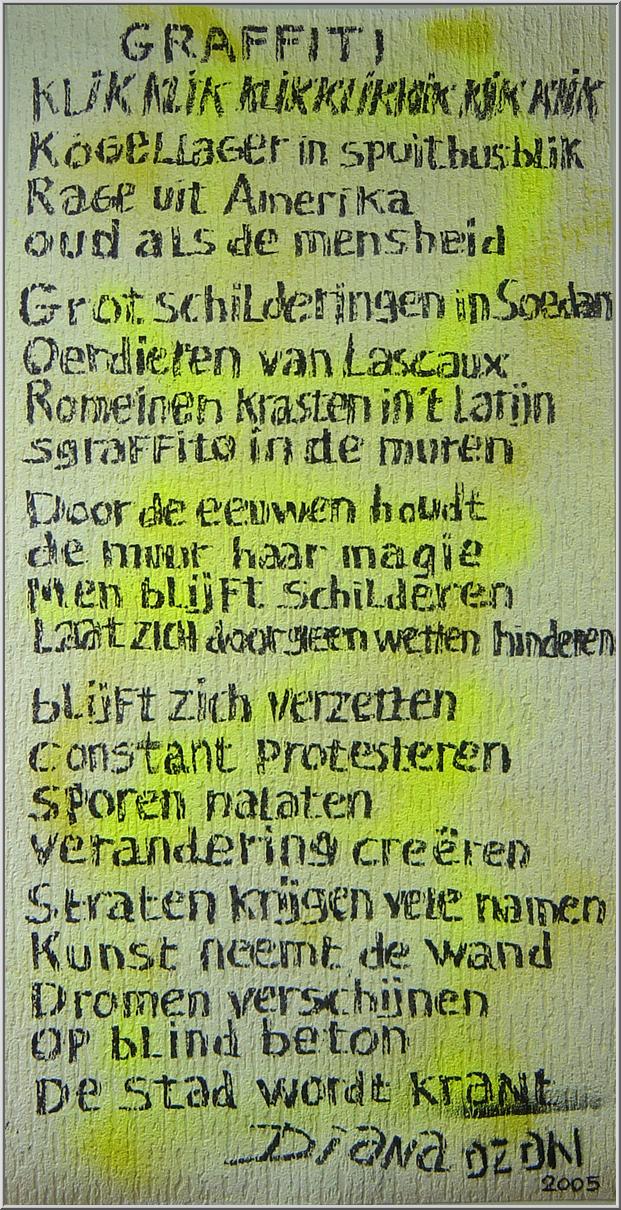 GRAFFITI
KLIK KLIK KLIKKLIKKLIK KLIK KLIK
Kogellager in spuitbusblik
Rage uit Amerika
oud als de mensheid
Grotschilderingen in Soedan
Oerdieren van Lascaux
Romeinen krasten in 't Latijn
sgraffito in de muren
Door de eeuwen houdt
de muur haar magie
Men blijft schilderen
Laat zich door geen wetten hinderen
blijft zich verzetten
constant protesteren
sporen nalaten
verandering creëren
Straten krijgen vele namen
Kunst neemt de wand
Dromen verschijnen
op blind beton
De stad wordt krant
Diana OZON
2005